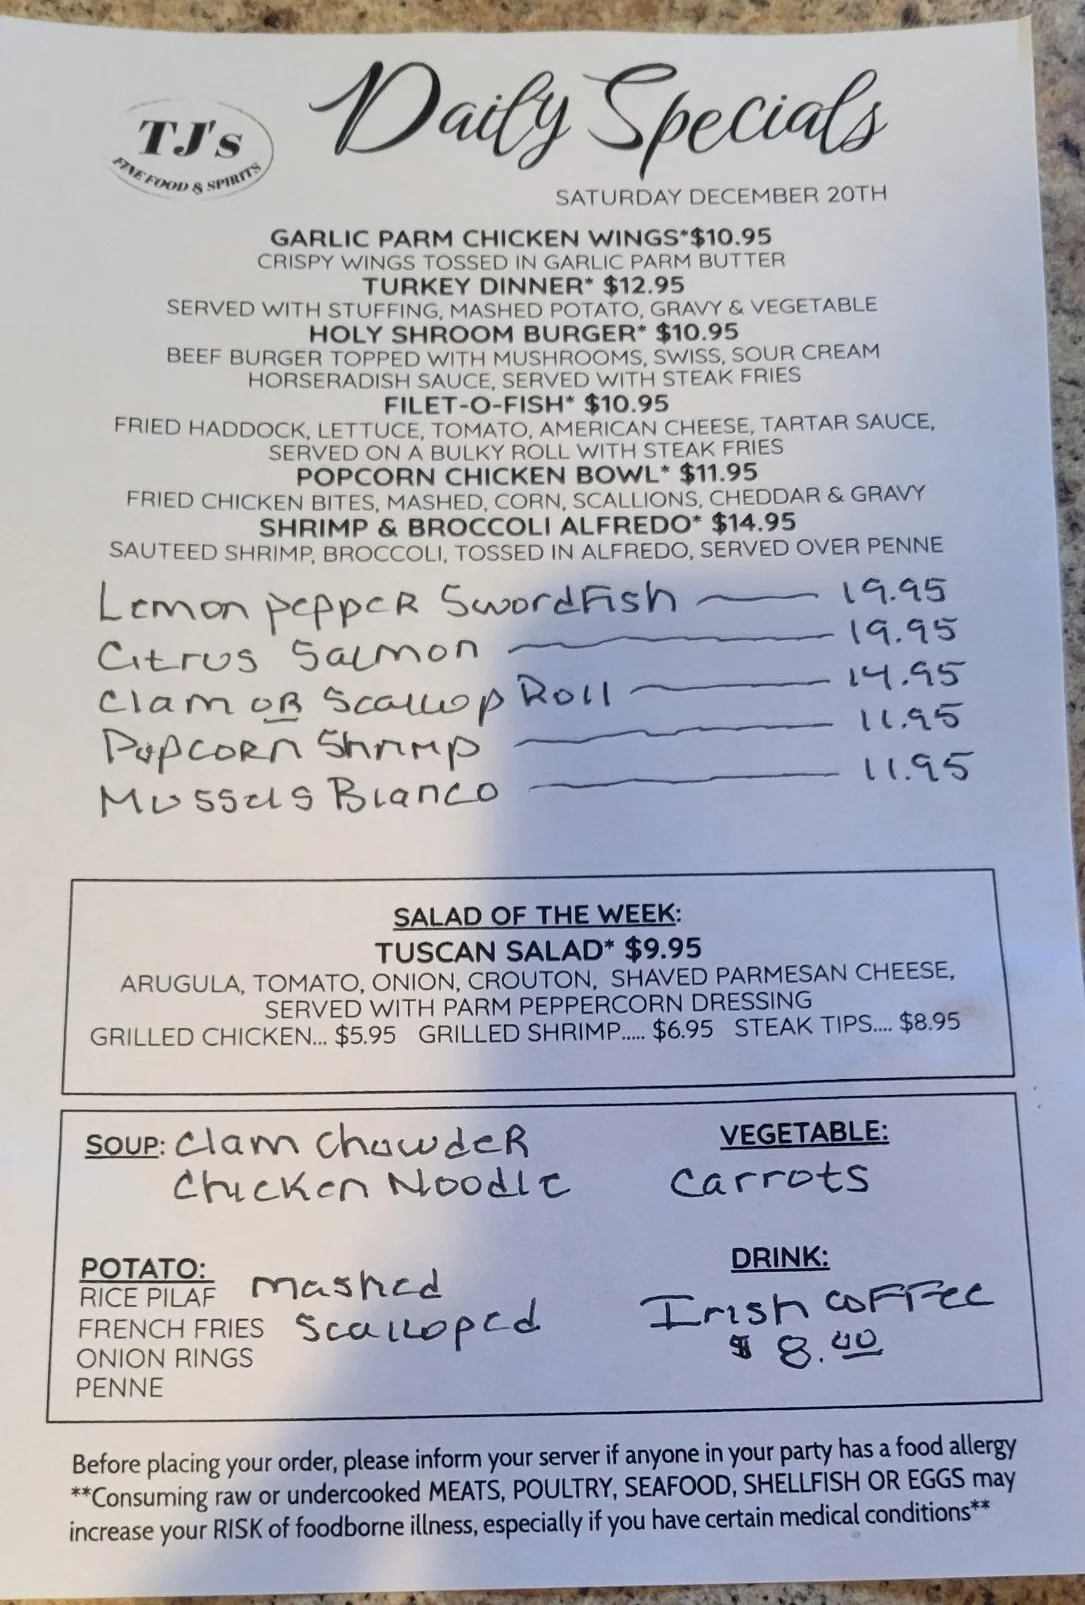 TJ's
FINE FOOD & SPIRITS
Daily Specials
SATURDAY DECEMBER 20TH
GARLIC PARM CHICKEN WINGS*$10.95
CRISPY WINGS TOSSED IN GARLIC PARM BUTTER
TURKEY DINNER* $12.95
SERVED WITH STUFFING, MASHED POTATO, GRAVY & VEGETABLE
HOLY SHROOM BURGER* $10.95
BEEF BURGER TOPPED WITH MUSHROOMS, SWISS, SOUR CREAM
HORSERADISH SAUCE, SERVED WITH STEAK FRIES
FILET-O-FISH* $10.95
FRIED HADDOCK, LETTUCE, TOMATO, AMERICAN CHEESE, TARTAR SAUCE,
SERVED ON A BULKY ROLL WITH STEAK FRIES
POPCORN CHICKEN BOWL* $11.95
FRIED CHICKEN BITES, MASHED, CORN, SCALLIONS, CHEDDAR & GRAVY
SHRIMP & BROCCOLI ALFREDO* $14.95
SAUTEED SHRIMP, BROCCOLI, TOSSED IN ALFREDO, SERVED OVER PENNE
Lemon pepper Swordfish — 19.95
Citrus Salmon — 19.95
Clam or Scallop Roll — 14.95
Popcorn Shrimp — 11.95
Mussels Bianco — 11.95
SALAD OF THE WEEK:
TUSCAN SALAD* $9.95
ARUGULA, TOMATO, ONION, CROUTON, SHAVED PARMESAN CHEESE,
SERVED WITH PARM PEPPERCORN DRESSING
GRILLED CHICKEN... $5.95 GRILLED SHRIMP..... $6.95 STEAK TIPS.... $8.95
SOUP: Clam Chowder
Chicken Noodle
VEGETABLE:
Carrots
POTATO:
RICE PILAF mashed
FRENCH FRIES Scalloped
ONION RINGS
PENNE
DRINK:
Irish Coffee
$ 8.00
Before placing your order, please inform your server if anyone in your party has a food allergy
**Consuming raw or undercooked MEATS, POULTRY, SEAFOOD, SHELLFISH OR EGGS may
increase your RISK of foodborne illness, especially if you have certain medical conditions**